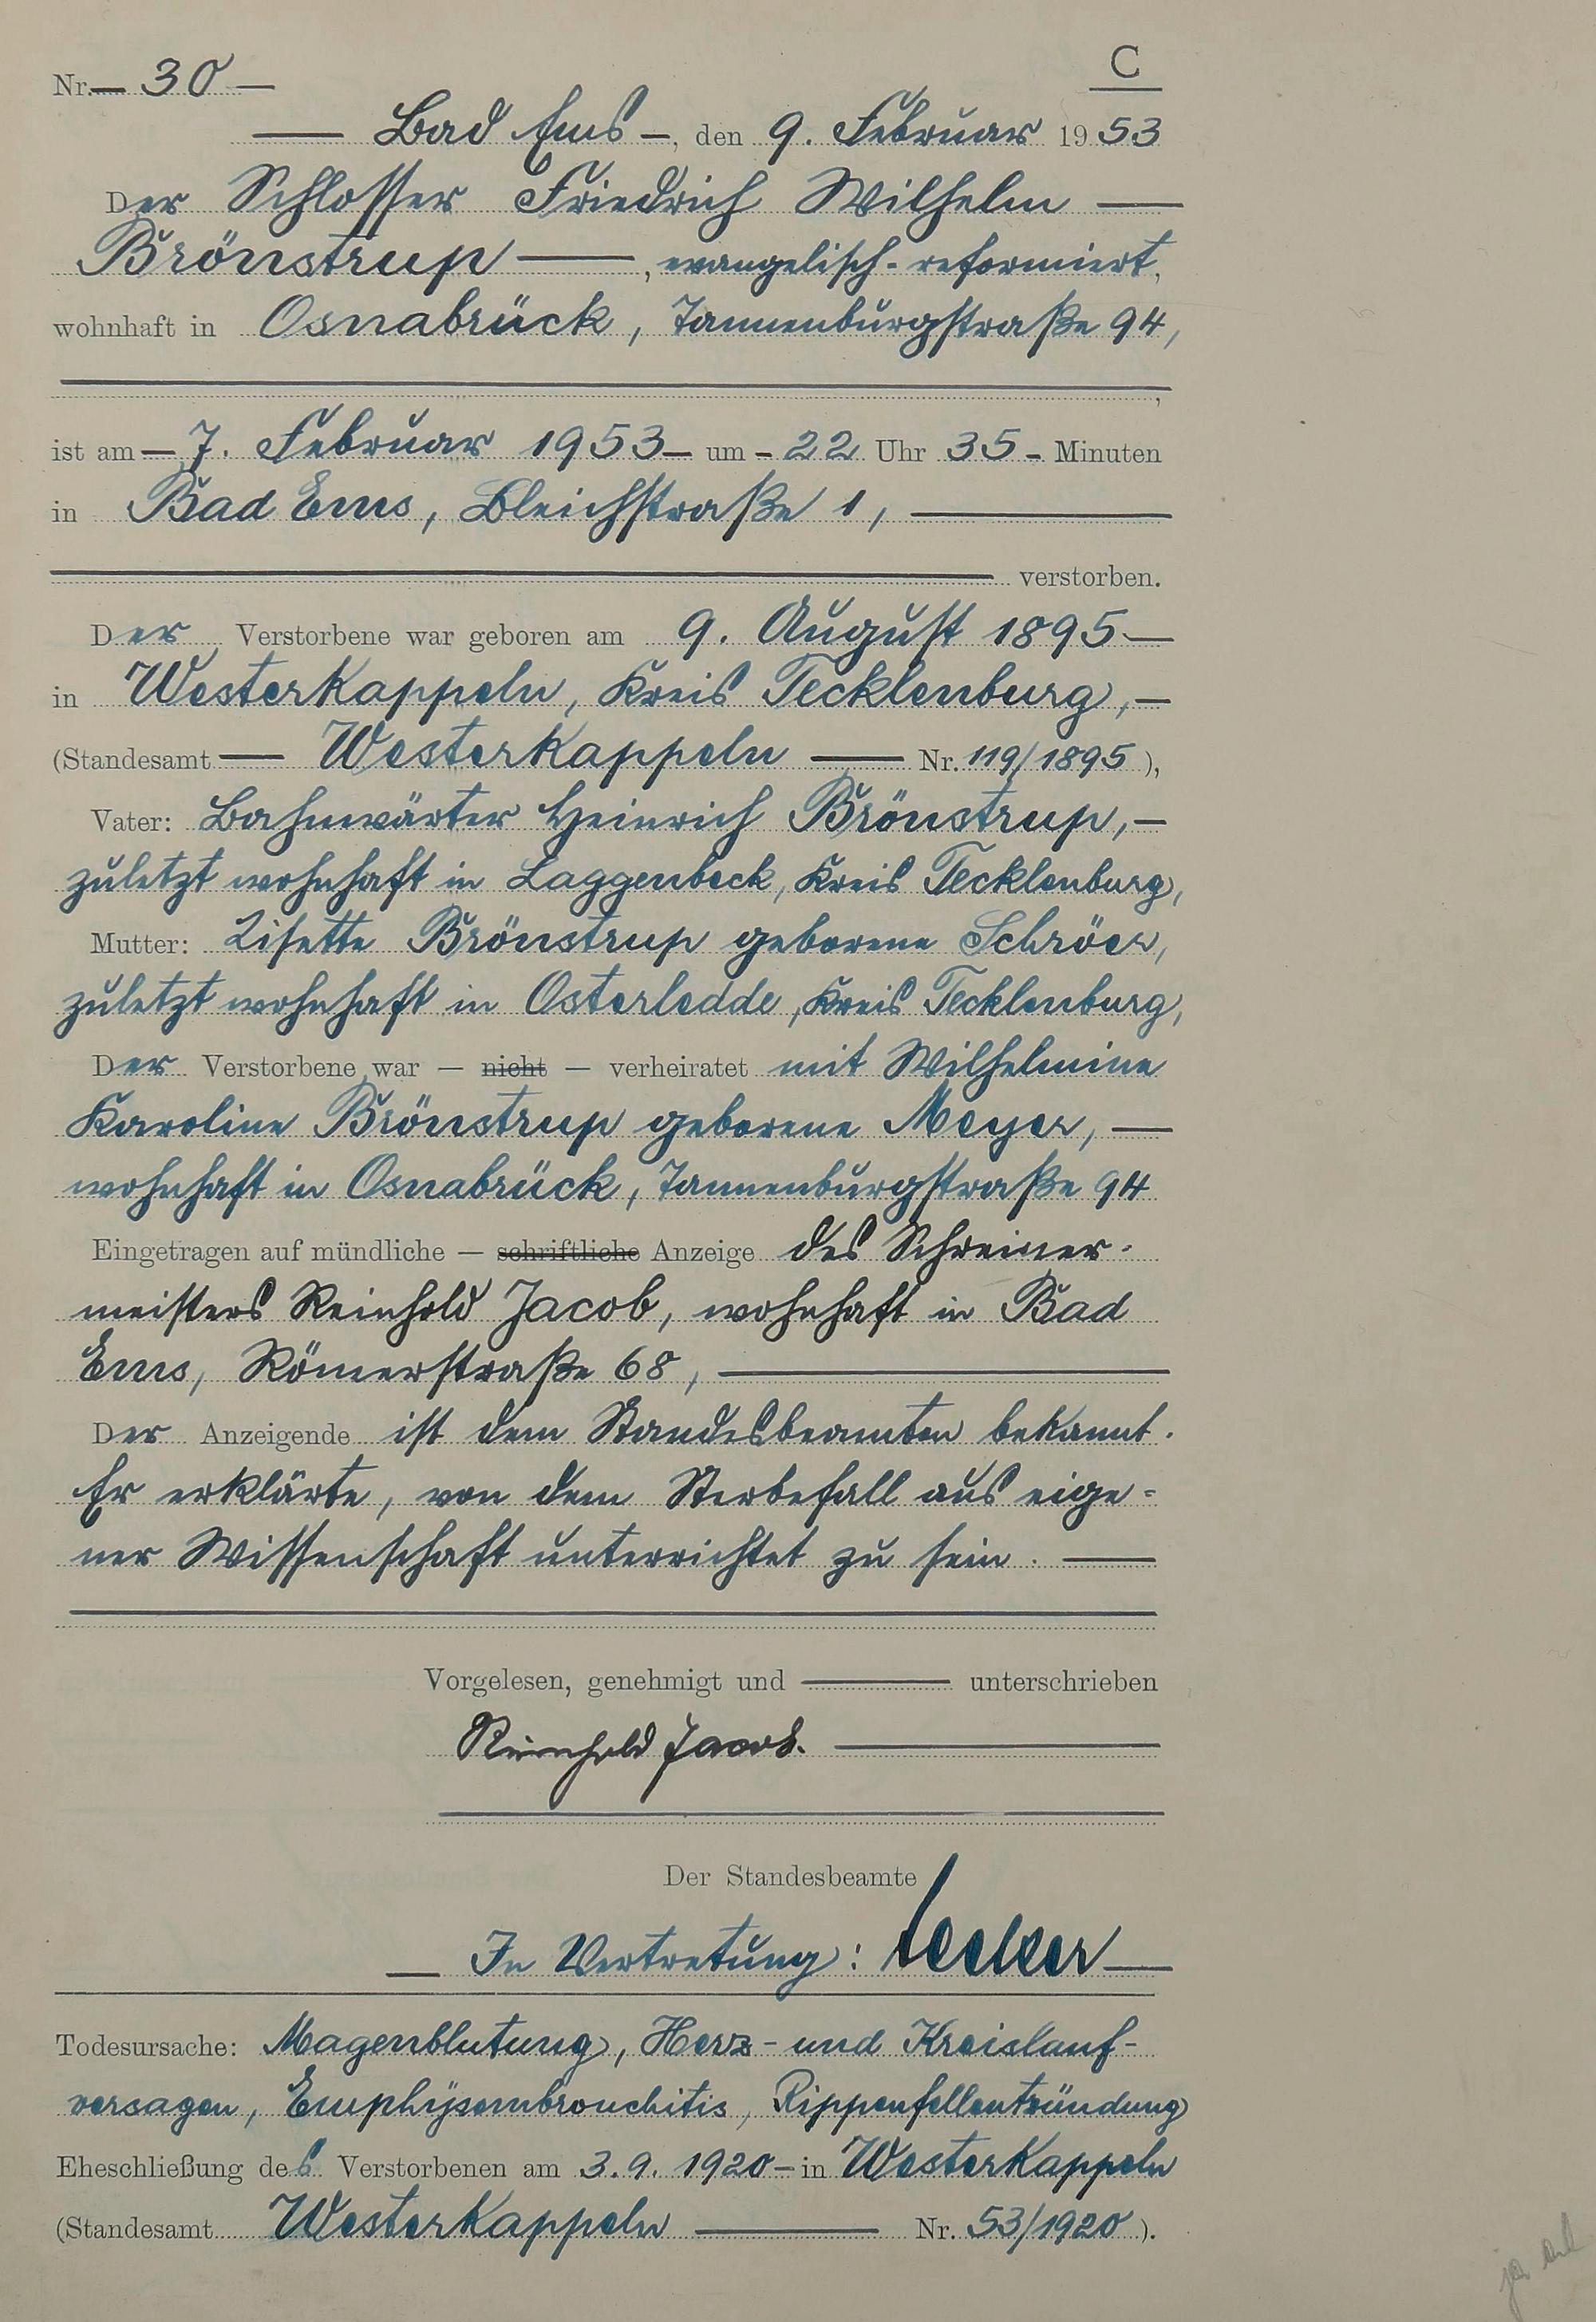 C
Nr. 30
Bad Ems, den 9. Februar 1953
Der Schlosser Friedrich Wilhelm
Brönstrup, evangelisch-reformiert,
wohnhaft in Osnabrück, Tannenburgstraße 94,
ist am 7. Februar 1953 um 22 Uhr 35 Minuten
in Bad Ems, Bleichstraße 1,
verstorben.
Der Verstorbene war geboren am 9. August 1895
in Westerkappeln, Kreis Tecklenburg,
(Standesamt Westerkappeln Nr. 119/1895),
Vater: Bahnwärter Heinrich Brönstrup,
zuletzt wohnhaft in Laggenbeck, Kreis Tecklenburg,
Mutter: Lisette Brönstrup geborene Schröer,
zuletzt wohnhaft in Osterledde, Kreis Tecklenburg,
Der Verstorbene war — nicht — verheiratet mit Wilhelmine
Karoline Brönstrup geborene Meyer,
wohnhaft in Osnabrück, Tannenburgstraße 94
Eingetragen auf mündliche — schriftliche Anzeige des Schreiner-
meisters Reinhold Jacob, wohnhaft in Bad
Ems, Römerstraße 68,
Der Anzeigende ist dem Standesbeamten bekannt.
Er erklärte, von dem Sterbefall aus eige-
ner Wissenschaft unterrichtet zu sein.
Vorgelesen, genehmigt und unterschrieben
Reinhold Jacob.
Der Standesbeamte
In Vertretung:
Todesursache: Magenblutung, Herz- und Kreislauf-
versagen, Emphysembronchitis, Rippenfellentzündung
Eheschließung des Verstorbenen am 3.9.1920 in Westerkappeln
(Standesamt Westerkappeln Nr. 53/1920).